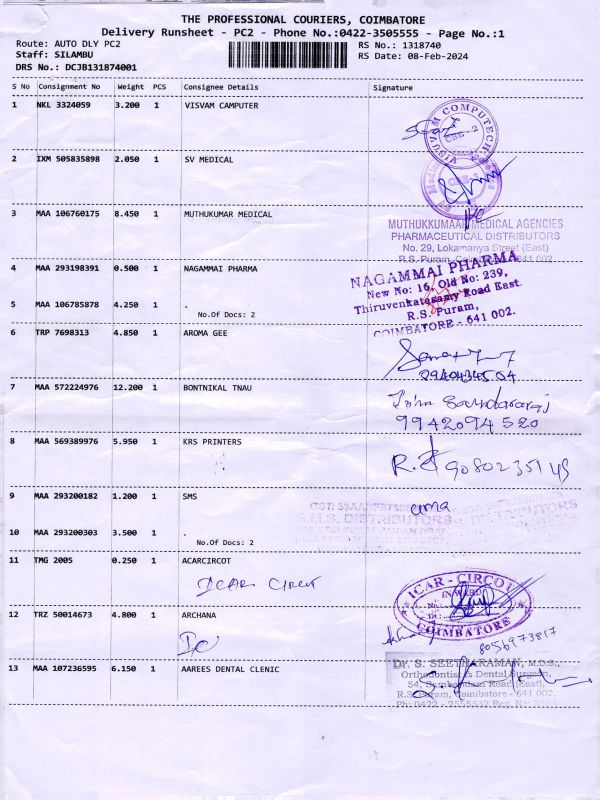 THE PROFESSIONAL COURIERS, COIMBATORE
Delivery Runsheet - PC2 - Phone No.:0422-3505555 - Page No.:1
Route: AUTO DLY PC2 RS No.: 1318740
Staff: SILAMBU RS Date: 08-Feb-2024
DRS No.: DCJB131874001
S No Consignment No Weight PCS Consignee Details Signature
1 NKL 3324059 3.200 1 VISVAM CAMPUTER
VISUVAM COMPUTECH
CBE-2
2 IXM 505835898 2.050 1 SV MEDICAL
3 MAA 106760175 8.450 1 MUTHUKUMAR MEDICAL
MUTHUKKUMAAR MEDICAL AGENCIES
PHARMACEUTICAL DISTRIBUTORS
No. 29, Lokamanya Street (East)
R.S. Puram, Coimbatore-641 002.
4 MAA 293198391 0.500 1 NAGAMMAI PHARMA
NAGAMMAI PHARMA
New No: 16, Old No: 239,
Thiruvenkatasamy Road East.
R.S. Puram,
COIMBATORE - 641 002.
5 MAA 106785878 4.250 1 .
No.Of Docs: 2
6 TRP 7698313 4.850 1 AROMA GEE
7 MAA 572224976 12.200 1 BONTNIKAL TNAU
John Soundararaj
9942094520
8 MAA 569389976 5.950 1 KRS PRINTERS
9080235149
9 MAA 293200182 1.200 1 SMS
uma
S.M.S. DISTRIBUTORS
10 MAA 293200303 3.500 1 .
No.Of Docs: 2
11 TMG 2005 0.250 1 ACARCIRCOT
ICAR CIRCOT
ICAR-CIRCOT
INWARD
COIMBATORE
12 TRZ 50014673 4.800 1 ARCHANA
8056973817
13 MAA 107236595 6.150 1 AAREES DENTAL CLENIC
Dr. S. SEETHARAMAN, M.D.S.,
Orthodontist & Dental Surgeon,
54, Sambandam Road (East),
R.S. Puram, Coimbatore - 641 002.